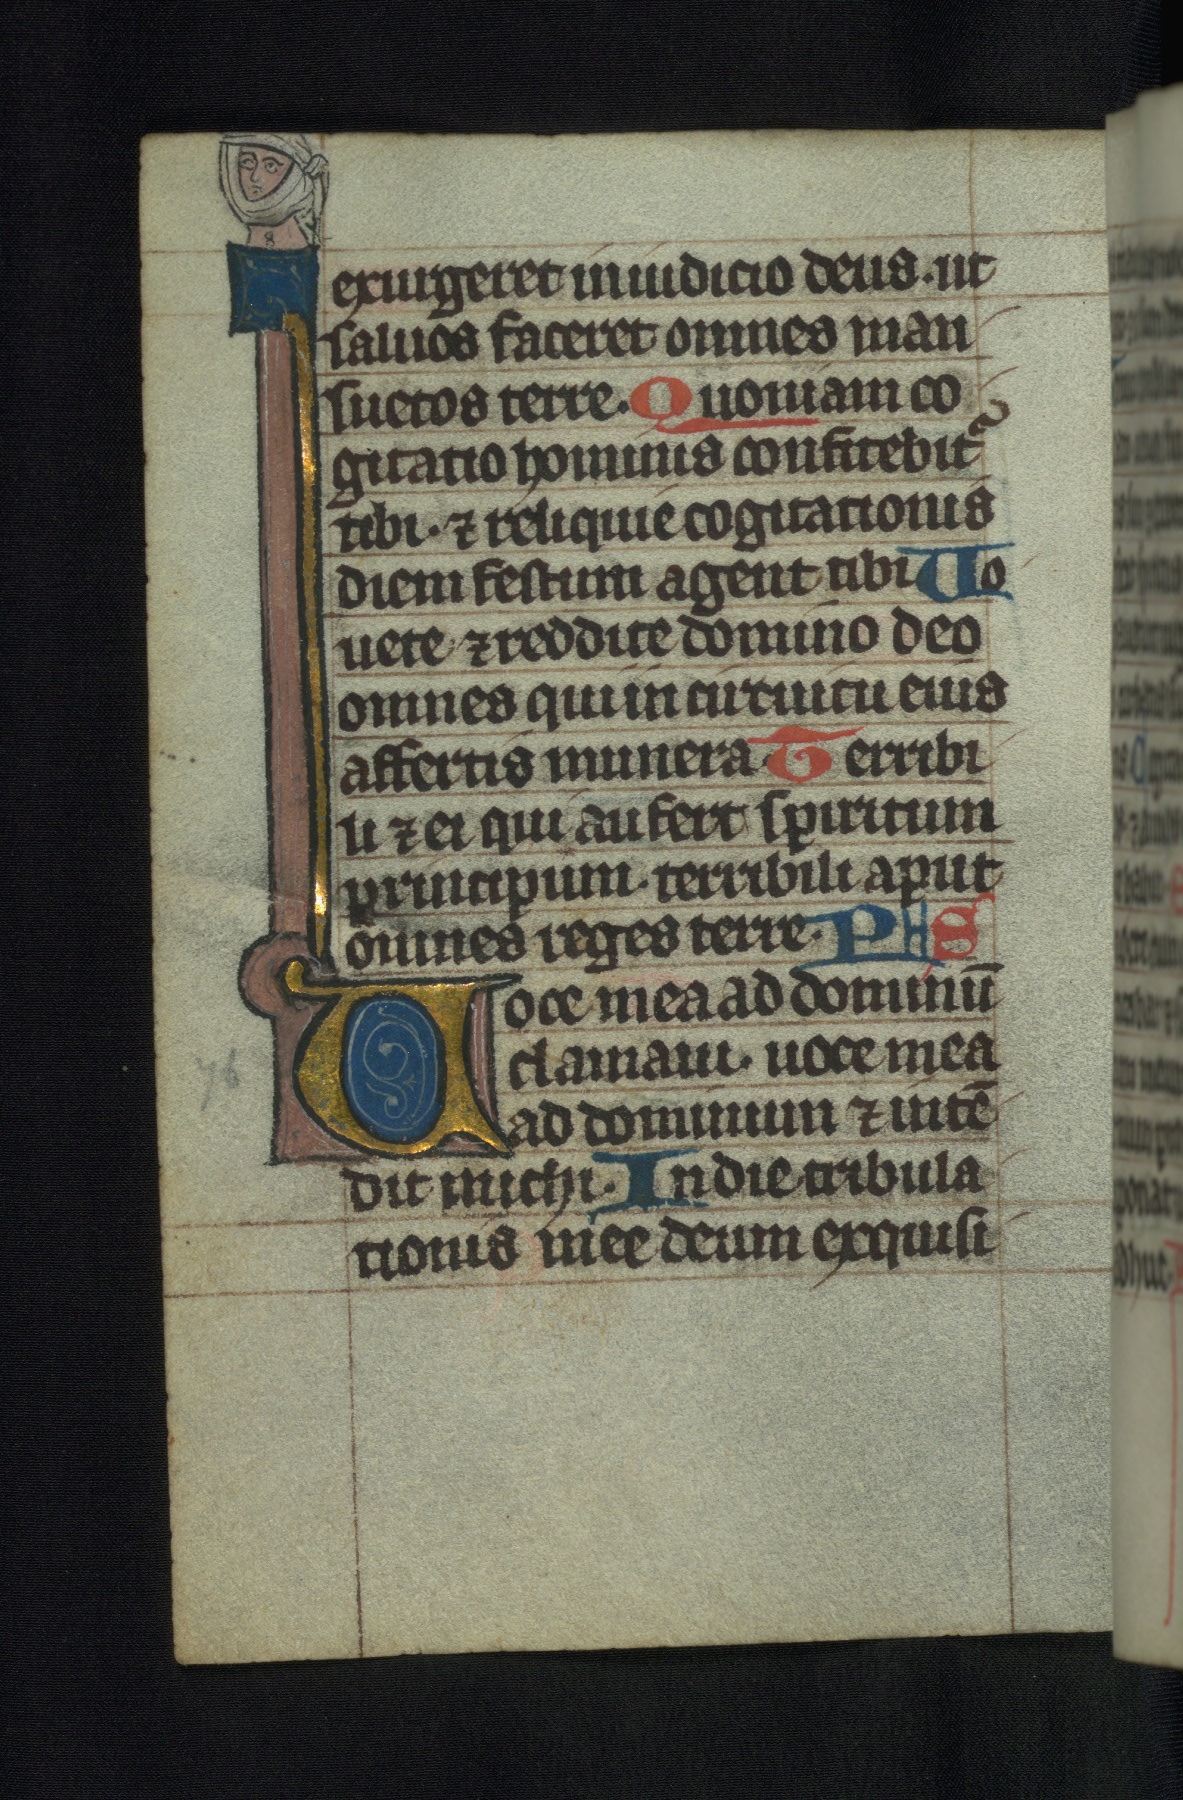 exurgeret in iudicio deus. ut
saluos faceret omnes man
suetos terre. Quoniam co
gitatio hominis confitebit᷑
tibi. ⁊ reliquie cogitationis
diem festum agent tibi Uo
uete ⁊ reddite domino deo
omnes qui in circuitu eius
affertis munera. Terribi
li ⁊ ei qui aufert spiritum
principum. terribili aput
omnes reges terre. PS
Uoce mea ad dominū
clamaui. uoce mea
ad dominum ⁊ intē
dit michi. In die tribula
tionis mee deum exquisi
76